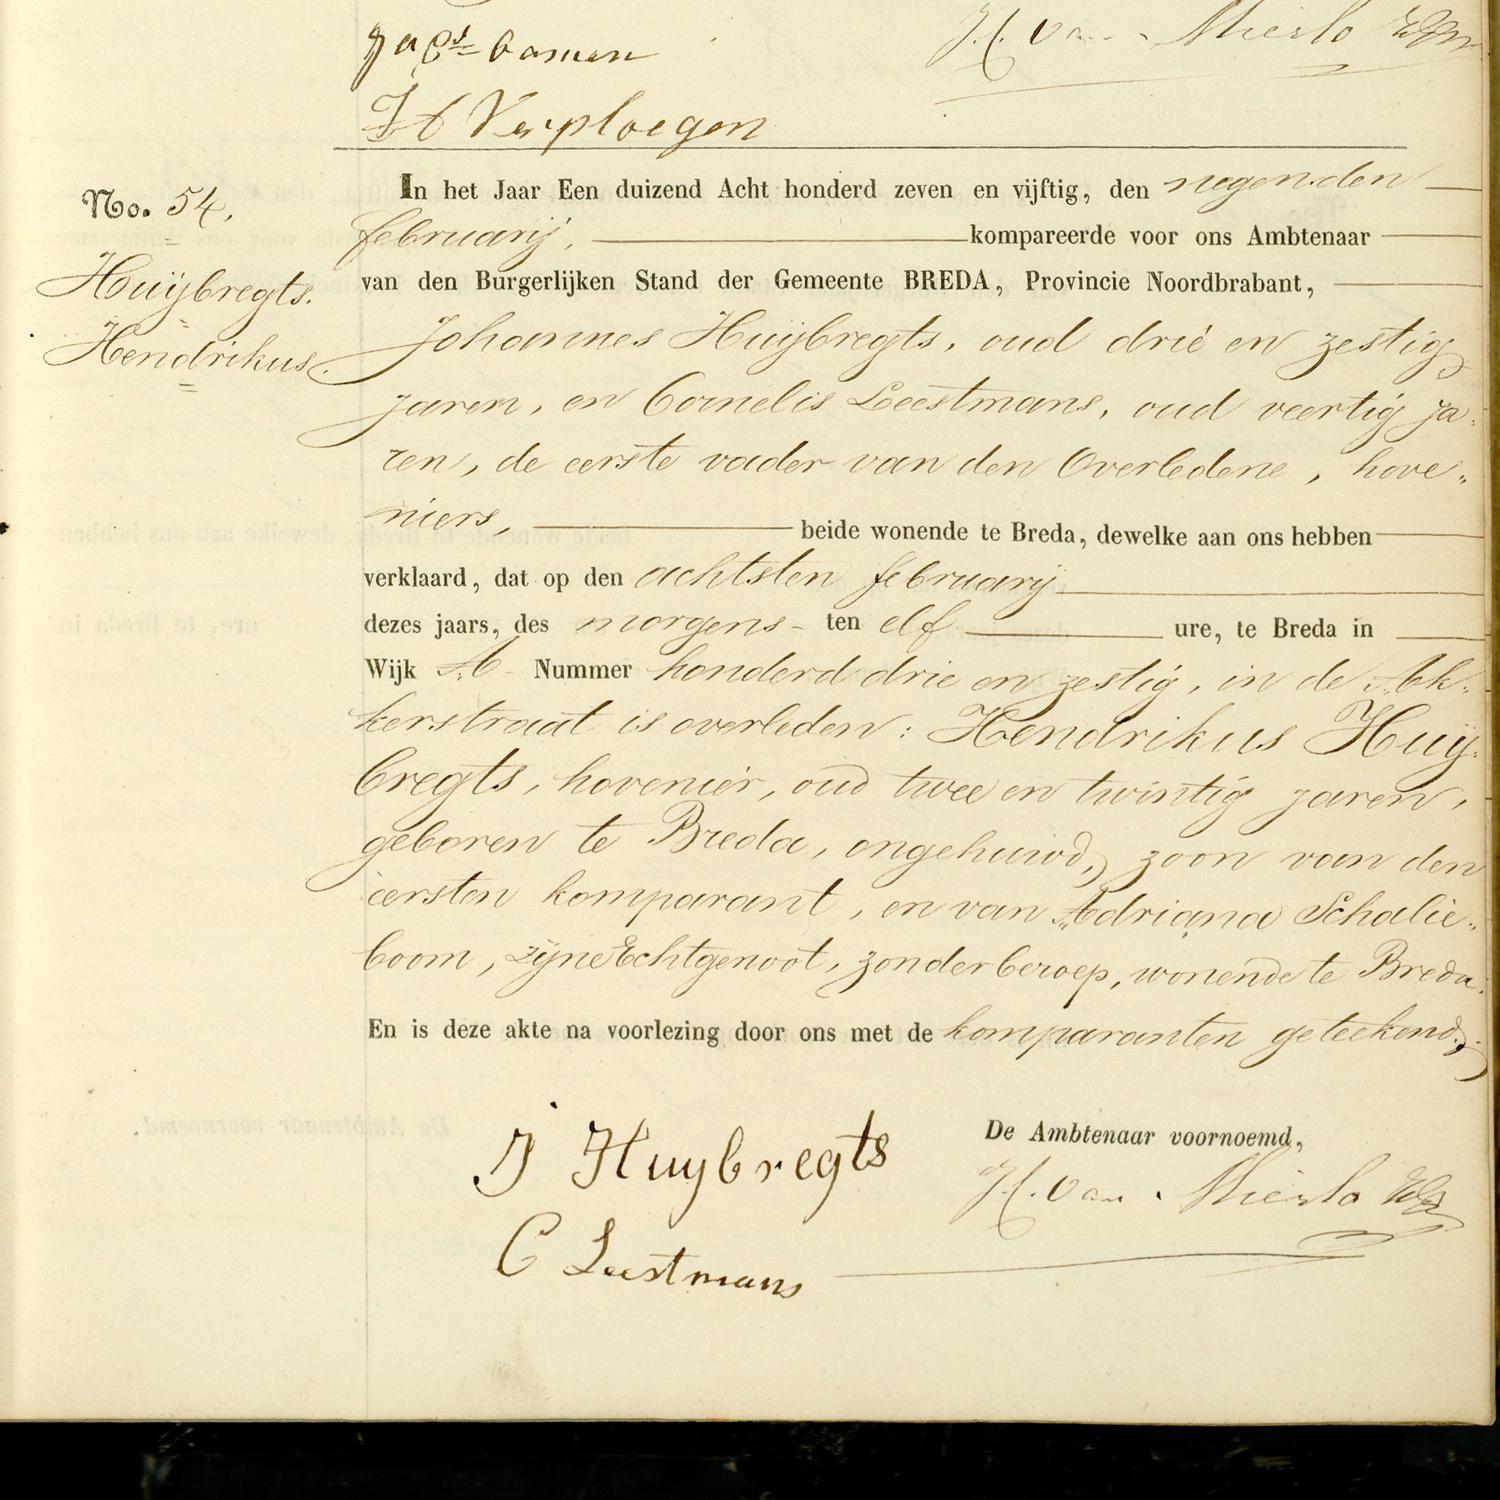 Jac^s= Oomen
H. van Mierlo
Verploegen
No. 54.
Huijbregts.
Hendrikus.
In het Jaar Een duizend Acht honderd zeven en vijftig, den negenden
februarij, kompareerde voor ons Ambtenaar
van den Burgerlijken Stand der Gemeente BREDA, Provincie Noordbrabant,
Johannes Huijbregts, oud drie en zestig
jaren, en Cornelis Leestmans, oud veertig ja-
ren, de eerste vader van den Overledene, hove-
niers, beide wonende te Breda, dewelke aan ons hebben
verklaard, dat op den achtsten februarij
dezes jaars, des morgens ten elf ure, te Breda in
Wijk A Nummer honderd drie en zestig, in de Ak-
kerstraat is overleden: Hendrikus Huij-
bregts, hovenier, oud twee en twintig jaren,
geboren te Breda, ongehuwd, zoon van den
eersten komparant, en van Adriana Schalie-
boom, zijne Echtgenoot, zonder beroep, wonende te Breda.
En is deze akte na voorlezing door ons met de komparanten geteekend,
J Huybregts
De Ambtenaar voornoemd,
H. van Mierlo
C Leestmans